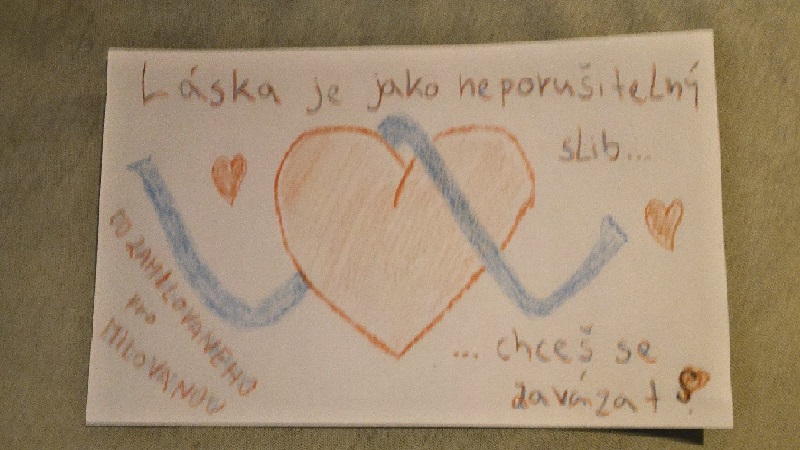 Láska je jako neporušitelný
slib...
OD ZAMILOVANÉHO
pro
MILOVANOU
... chceš se
zavázat ?